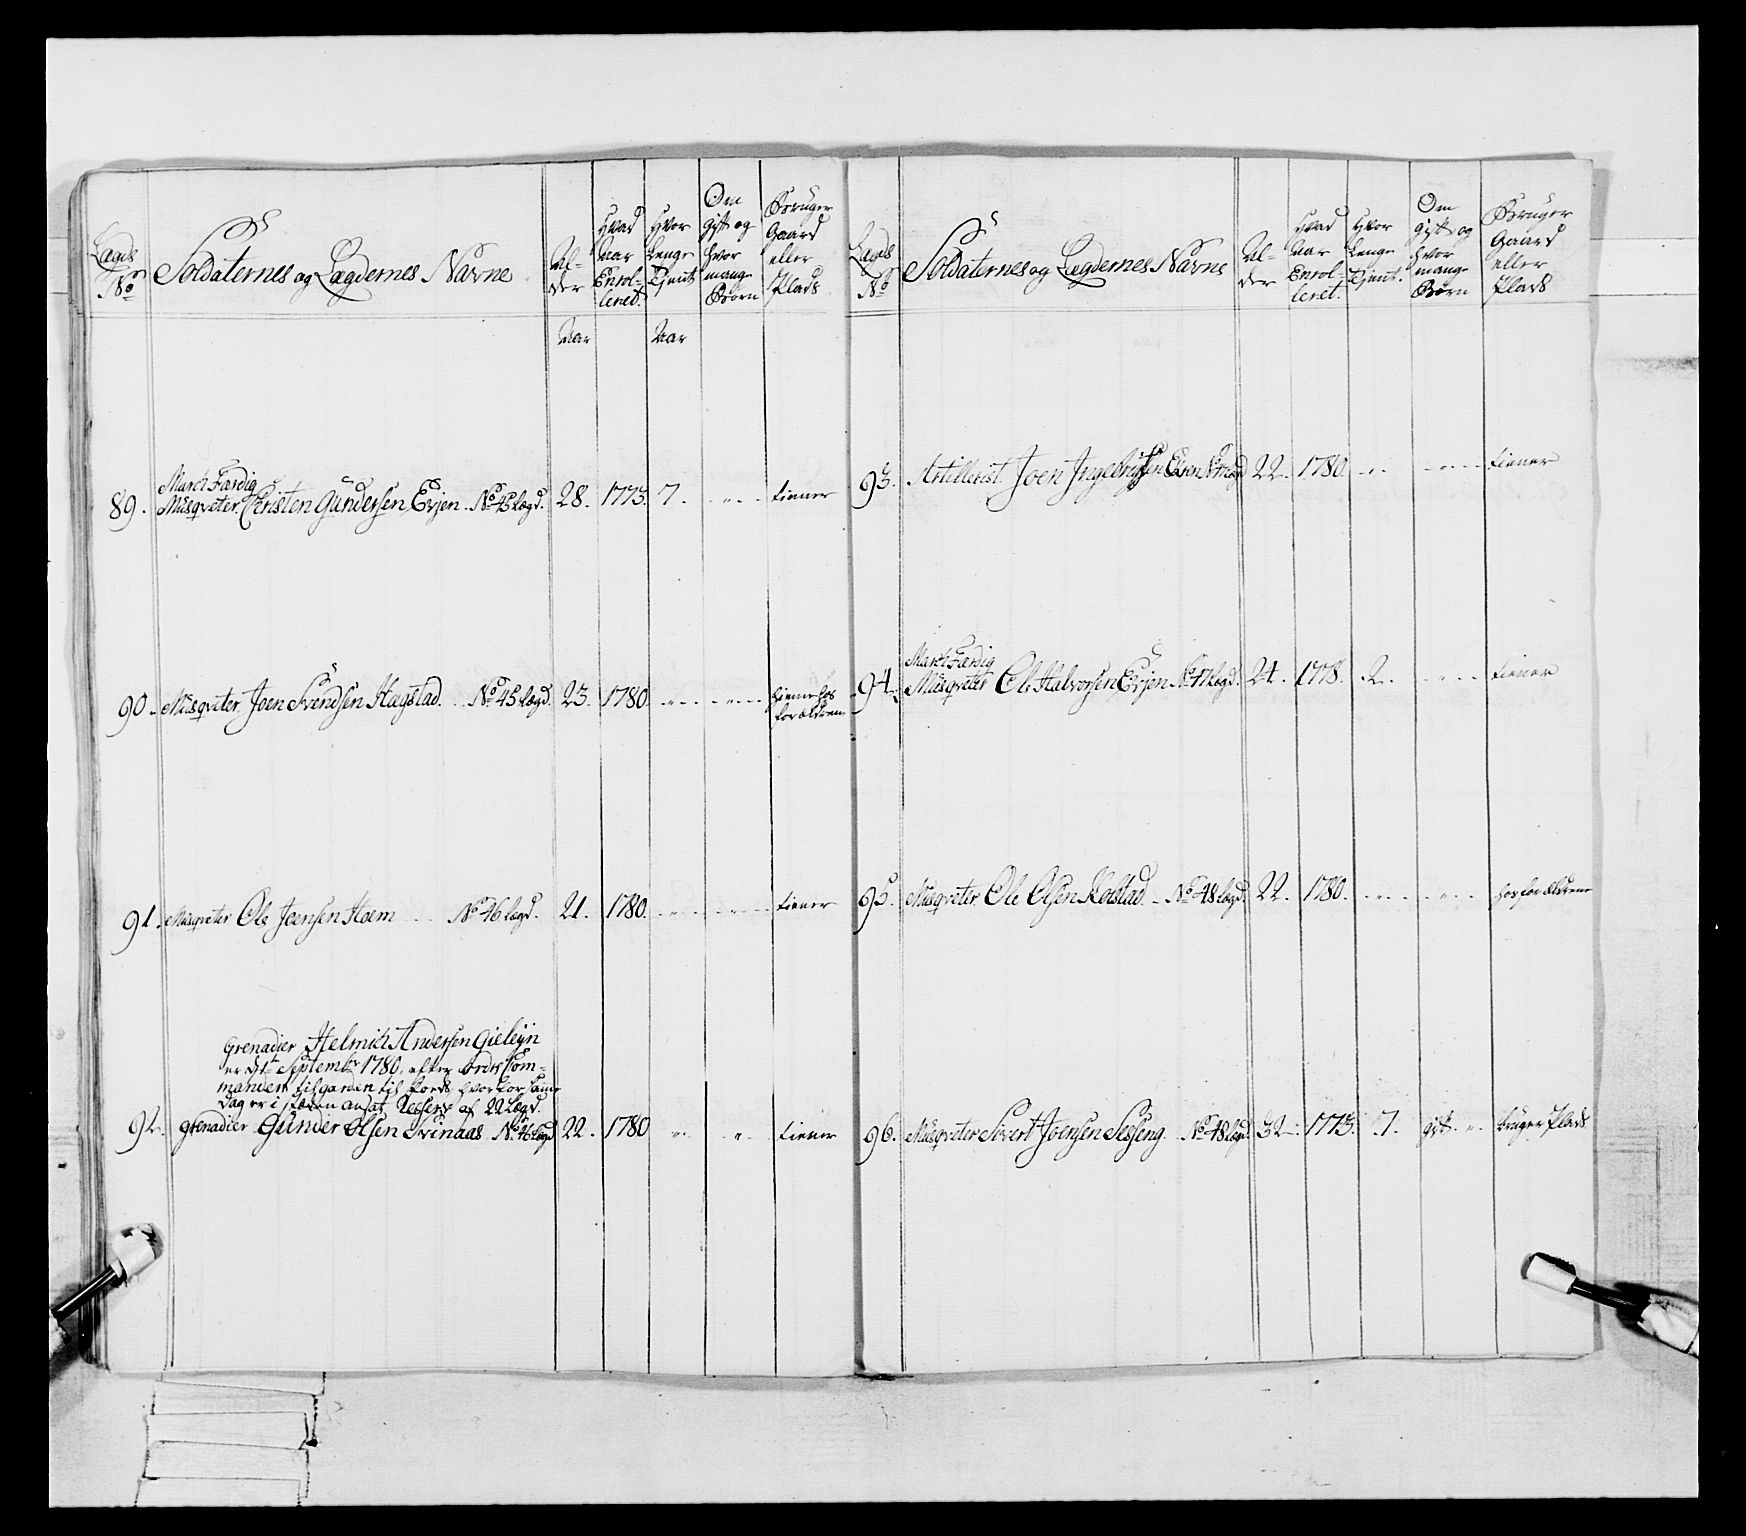 Lægds No
Soldaternes og Lægdernes Navne
Al-
der
Hvad
Aar
Enrol-
leret.
Hvor
Lenge
Tjent
Om
gift og
hvor
mange
Børn
Bruger
Gaard
eller
Plads
Aar
Aar
March Færdig
89. Musqveter Christen Gundersen Evjen. No 45 Lægd. 28. 1773. 7. tiener
90. Musqveter Joen Svendsen Hagstad. No 45 Lægd. 23. 1780 tiener hos
forældrene
91. Musqveter Ole Joensen Hoem No 46 Lægd. 21. 1780. tiener
Grenadier Helmich Andersen Gieleyn
er d. 1te Septembr 1780, efter ordre Com-
manderet til garden til fods, hvorfor samme
Dag er i stæden ansat Reserv af 22 Lægd.
92. Grenadier Gunder Olsen Svinaas No 46 Lægd 22. 1780 tiener
Lægds No
Soldaternes og Lægdernes Navne
Al-
der
Hvad
Aar
Enrol-
leret.
Hvor
Lenge
Tjent.
Om
gift og
hvor
mange
Børn
Bruger
Gaard
eller
Plads
93. Artillerist Joen Ingebrigtsen 22. 1780. tiener
March Færdig
94. Musqveter Ole Halvorsen Evjen No 47 Lægd. 24. 1778. 2. tiener
95. Musqveter Ole Olsen Kolstad. No 48 Lægd. 22. 1780. hos forældrene
96. Musqveter Sivert Joensen Sesseng No 48 Lægd. 32. 1773. 7. gift bruger Plads